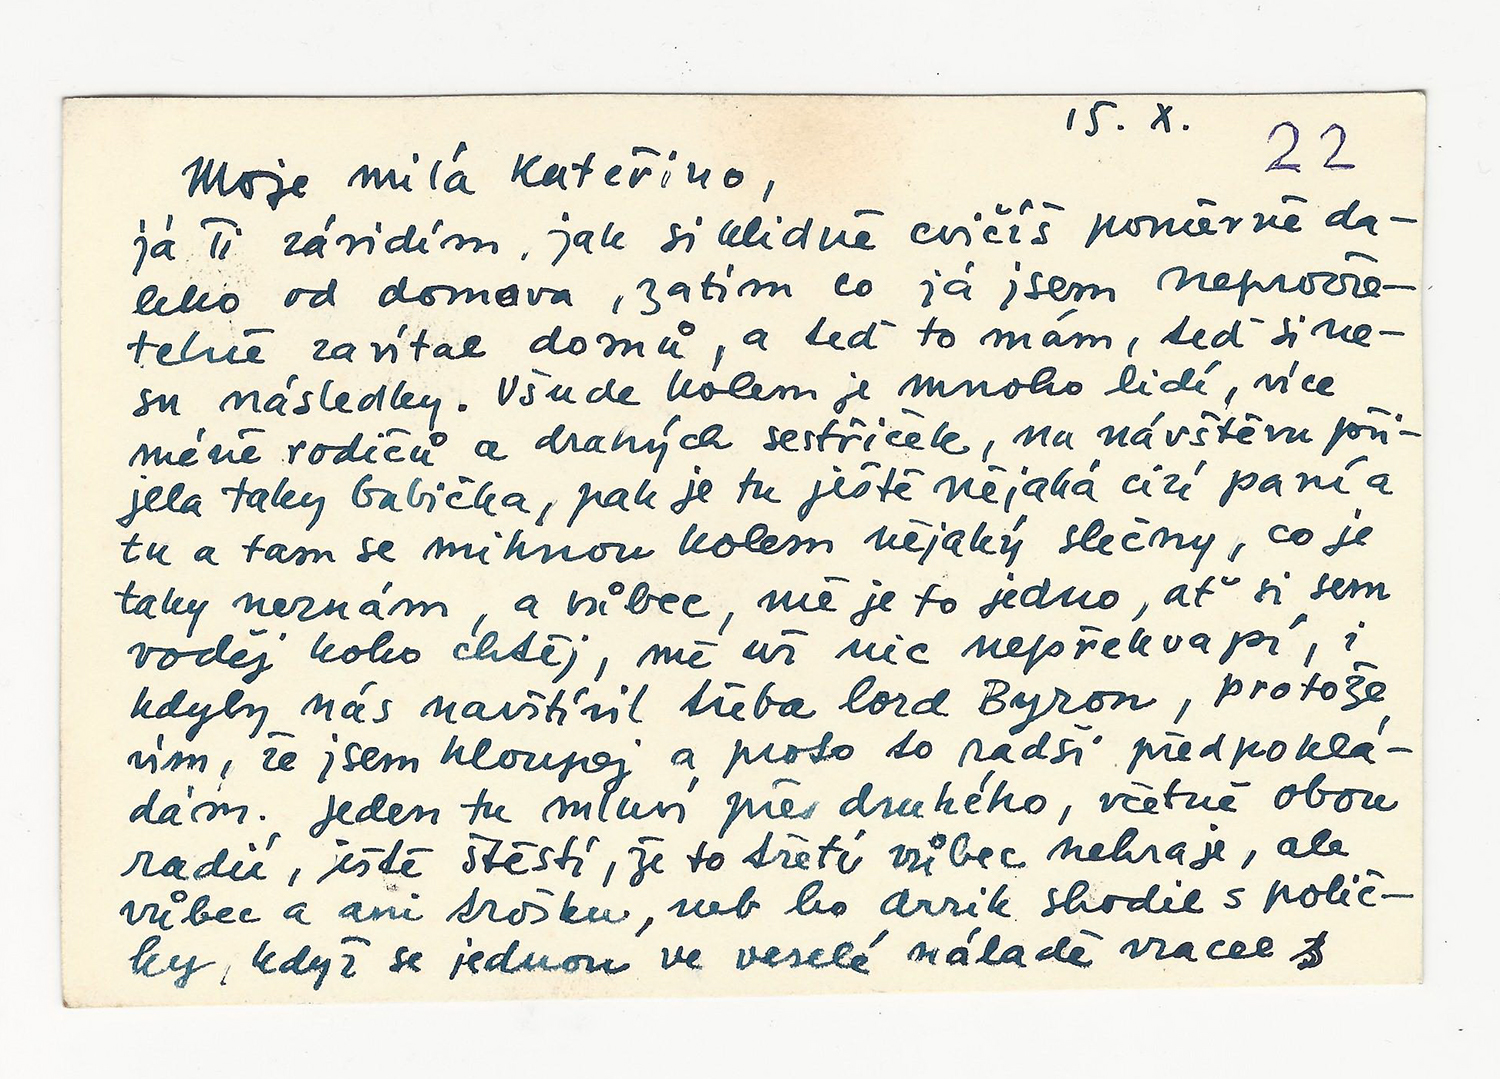 15. X.
22
Moje milá Kateřino,
já Ti závidím, jak si klidně cvičíš poměrně da-
leko od domova, zatím co já jsem neprozře-
telně zavítal domů, a teď to mám, teď si ne-
su následky. Všude kolem je mnoho lidí, více
méně rodičů a drahých sestřiček, na návštěvu při-
jela taky babička, pak je tu ještě nějaká cizí paní a
tu a tam se mihnou kolem nějaký slečny, co je
taky neznám, a vůbec, mě je to jedno, ať si sem
voděj koho chtěj, mě už nic nepřekvapí, i
kdyby nás navštívil třeba lord Byron, protože
vím, že jsem hloupej a proto to radši předpoklá-
dám. Jeden tu mluví přes druhého, včetně obou
radií, ještě štěstí, že to třetí vůbec nehraje, ale
vůbec a ani trošku, neb ho shodil s polič-
ky, když se jednou ve veselé náladě vracel